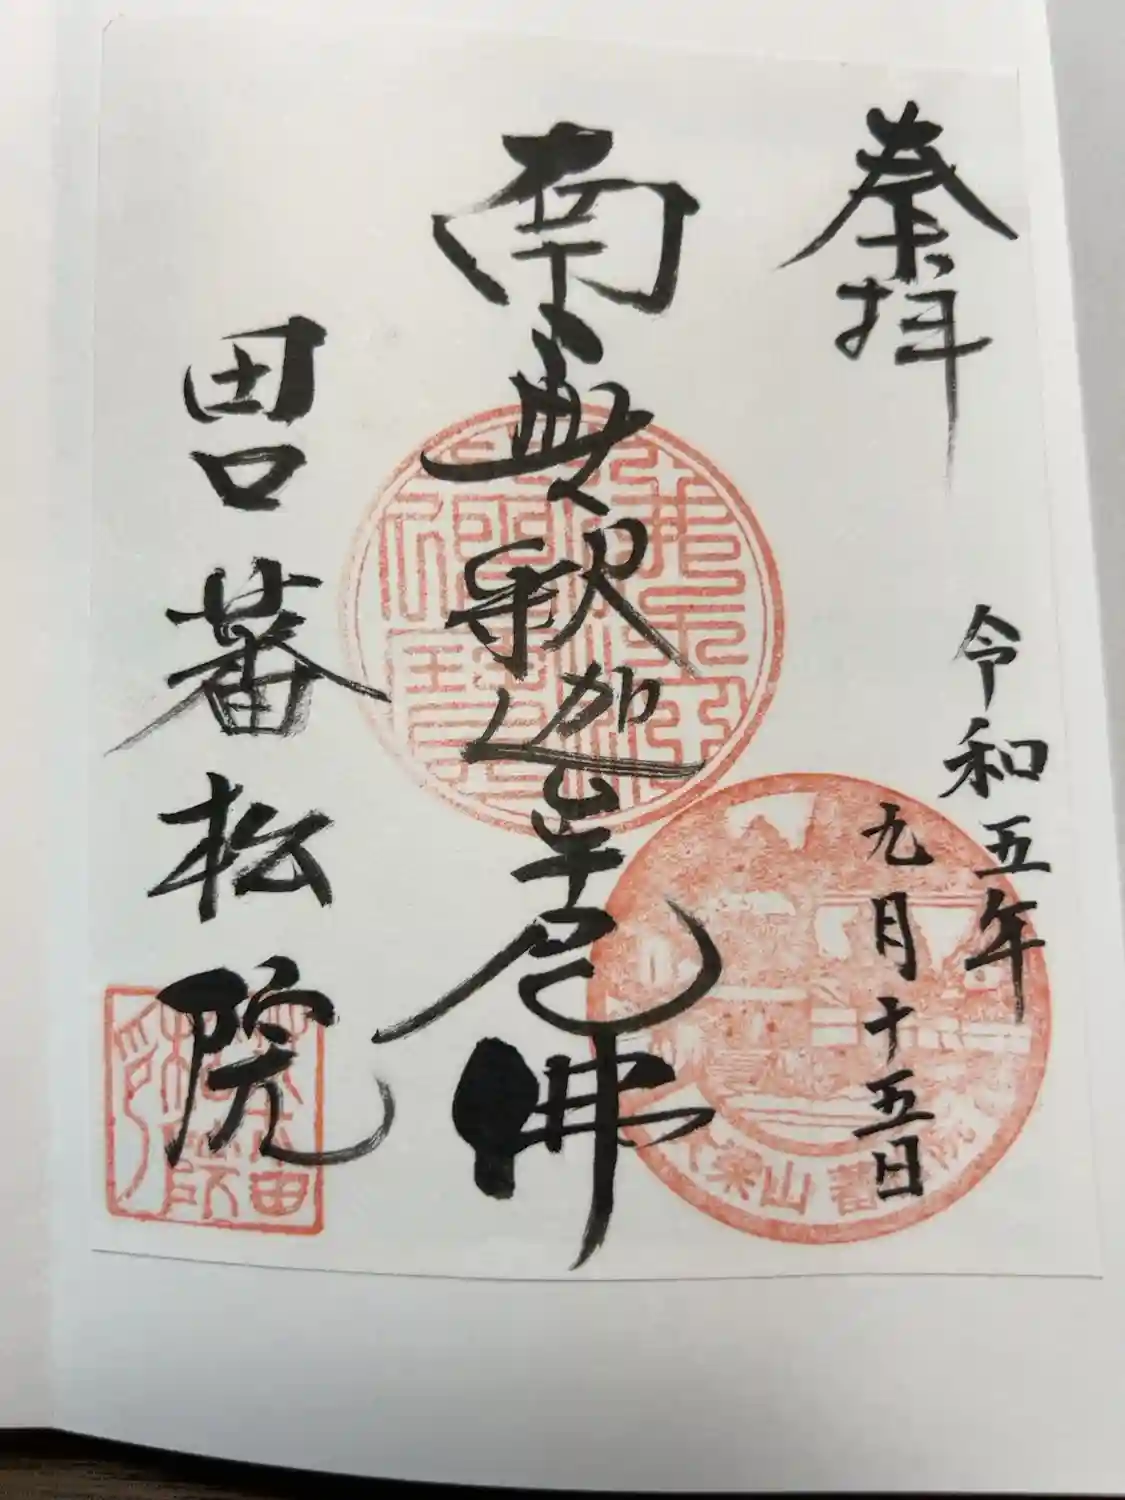 奉拝
令和五年
九月十五日
南無釈迦牟尼佛
田口蕃松院
山蕃
蕃松院印